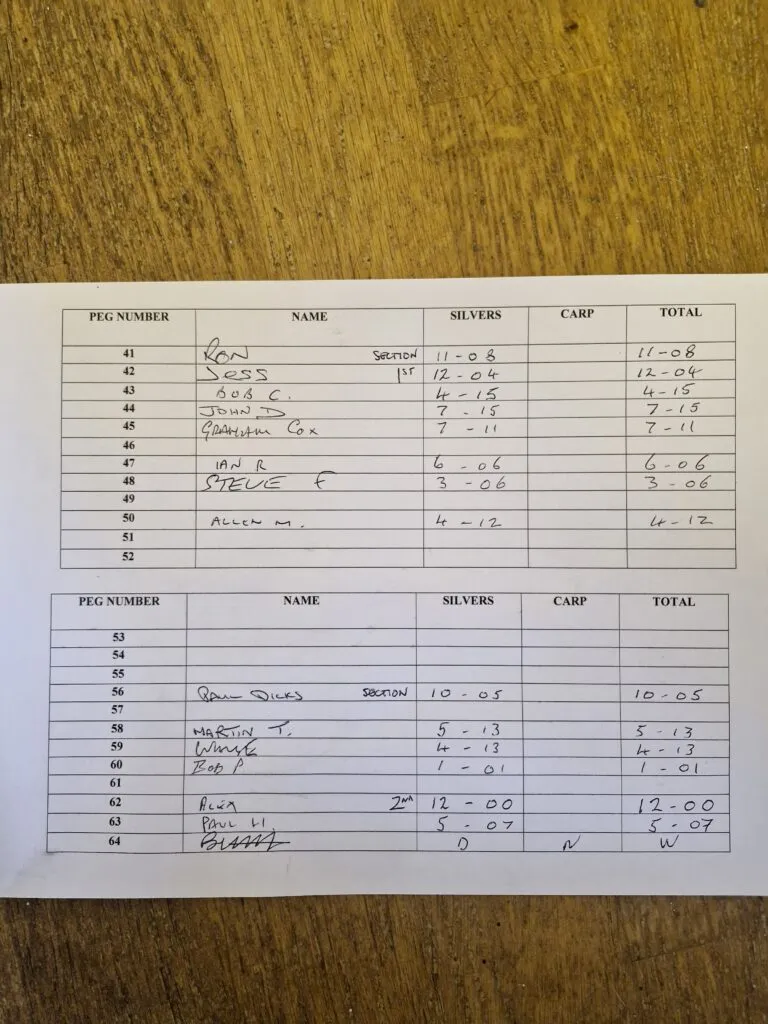 PEG NUMBER NAME SILVERS CARP TOTAL
41 RON SECTION 11-08 11-08
42 JESS 1ST 12-04 12-04
43 BOB C. 4-15 4-15
44 JOHN D 7-15 7-15
45 GRAHAM COX 7-11 7-11
46
47 IAN R 6-06 6-06
48 STEVE F 3-06 3-06
49
50 ALLEN M. 4-12 4-12
51
52
PEG NUMBER NAME SILVERS CARP TOTAL
53
54
55
56 PAUL DICKS SECTION 10-05 10-05
57
58 MARTIN T. 5-13 5-13
59 4-13 4-13
60 BOB P 1-01 1-01
61
62 ALEX 2ND 12-00 12-00
63 PAUL H. 5-07 5-07
64 D N W